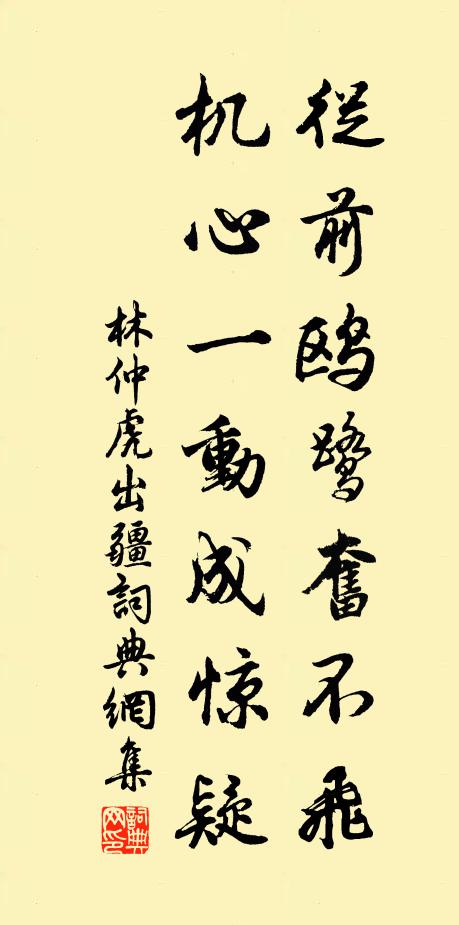 從前鸥鹭奮不飛
机心一動成惊疑
林仲虎出疆詞典網集
詞典网印